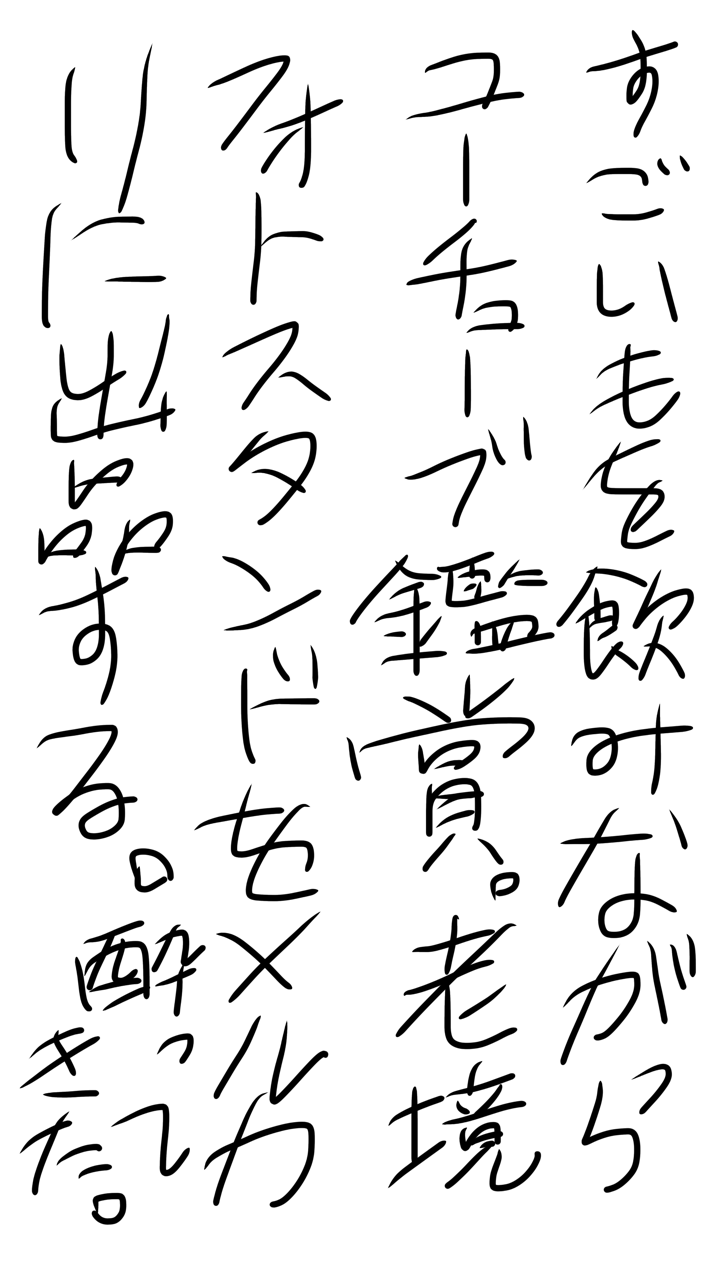 すごいもを飲みながら
ユーチューブ鑑賞。老境
フォトスタンドをメルカ
リに出品する。酔って
きた。